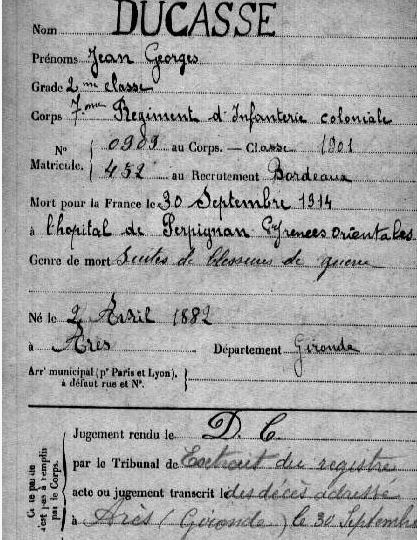 Nom DUCASSE
Prénoms Jean Georges
Grade 2me classe
Corps 7.me Regiment d'Infanterie coloniale
No 0989 au Corps. — Classe 1901
Matricule. 452 au Recrutement Bordeaux
Mort pour la France le 30 Septembre 1914
à l'hopital de Perpignan Pyrenees orientales
Genre de mort Suites de blessures de guerre
Né le 2 Avril 1882
à Arès Département Gironde
Arrt municipal (pr Paris et Lyon),
à défaut rue et No.
Jugement rendu le D. C.
par le Tribunal de Extrait du registre
acte ou jugement transcrit le des décès adressé
à Arès (Gironde) le 30 Septemb
n'est pas à remplir
par le Corps.